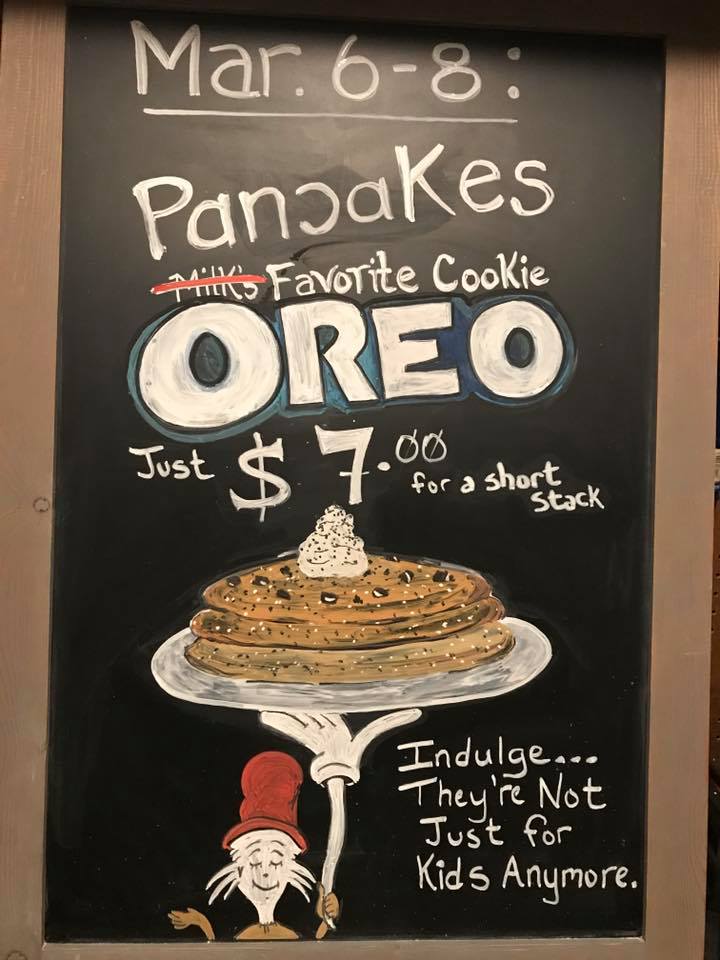 Mar. 6-8:
Pancakes
Milk's Favorite Cookie
OREO
Just $7.00 for a short
stack
Indulge...
They're Not
Just for
Kids Anymore.